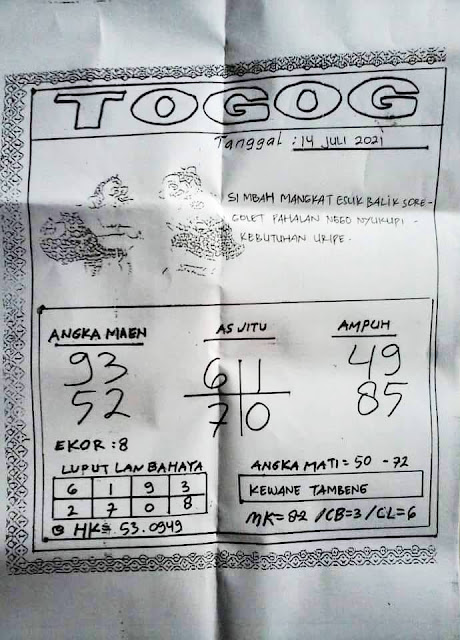 TOGOG
Tanggal : 14 JULI 2021
SI MBAH MANGKAT ESUK BALIK SORE -
GOLET PAHALAN NEGO NYUKUPI -
KEBUTUHAN URIPE.
ANGKA MAEN
93
52
EKOR : 8
AS JITU
6 1
7 0
AMPUH
49
85
LUPUT LAN BAHAYA
6 1 9 3
2 7 0 8
HK = 53.0949
ANGKA MATI = 50 - 72
KEWANE TAMBENG
MK = 82 / CB = 3 / CL = 6